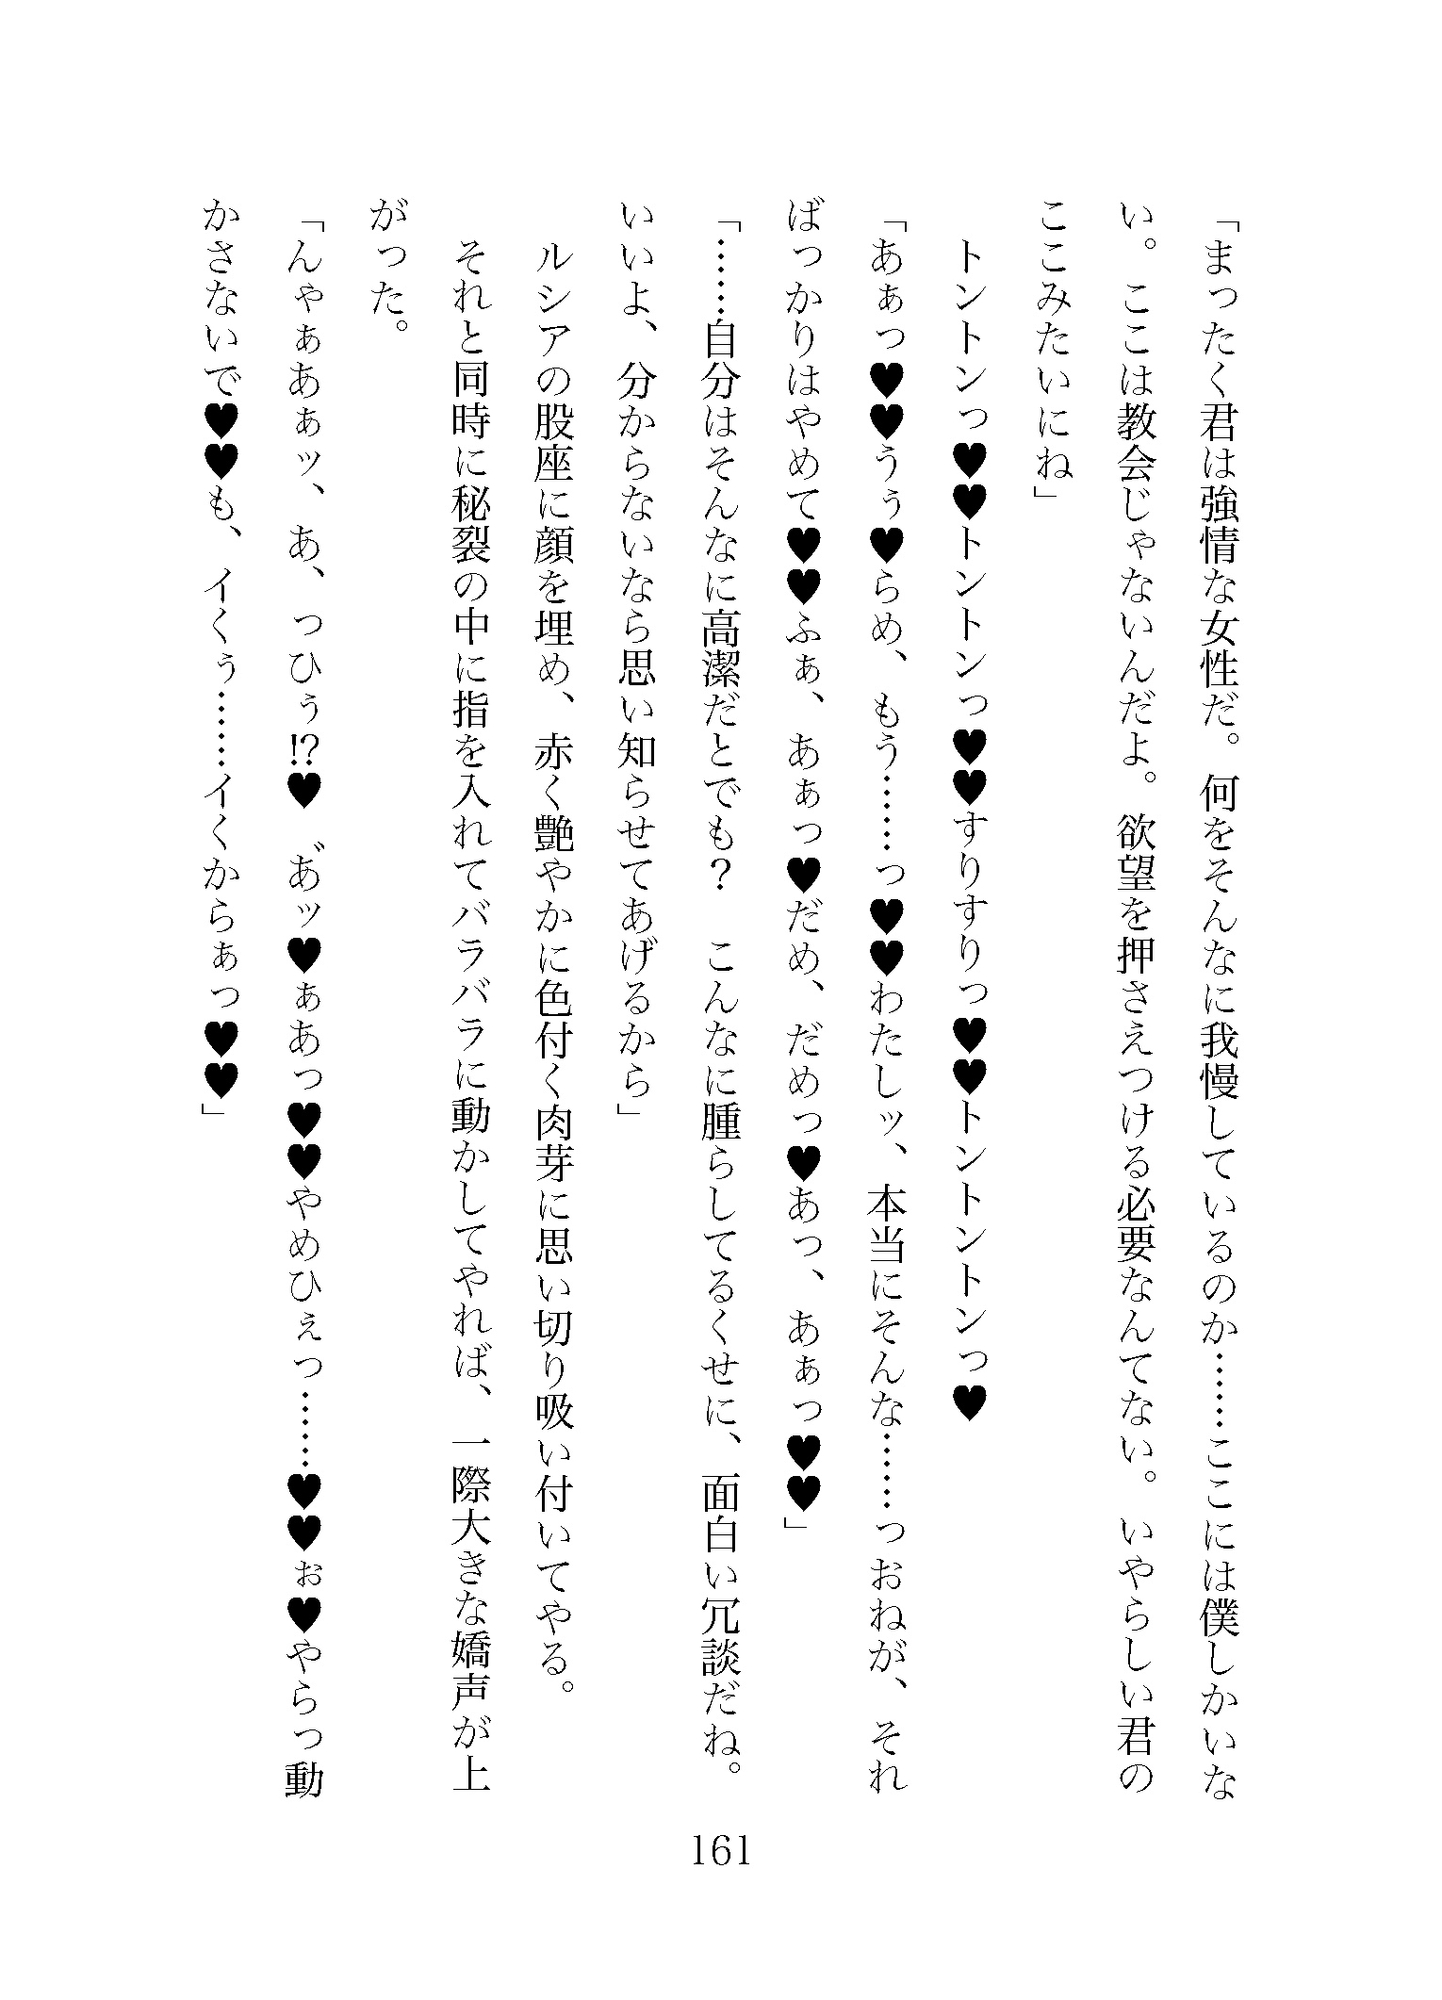 「まったく君は強情な女性だ。何をそんなに我慢しているのか……ここには僕しかいな
い。ここは教会じゃないんだよ。欲望を押さえつける必要なんてない。いやらしい君の
ここみたいにね」
　トントンっ♥♥トントンっ♥♥すりすりっ♥♥トントントンっ♥
「あぁっ♥♥うぅ♥らめ、もう……っ♥♥わたしッ、本当にそんな……っおねが、それ
ばっかりはやめて♥♥ふぁ、あぁっ♥だめ、だめっ♥あっ、あぁっ♥♥」
「……自分はそんなに高潔だとでも？　こんなに腫らしてるくせに、面白い冗談だね。
いいよ、分からないなら思い知らせてあげるから」
　ルシアの股座に顔を埋め、赤く艶やかに色付く肉芽に思い切り吸い付いてやる。
　それと同時に秘裂の中に指を入れてバラバラに動かしてやれば、一際大きな嬌声が上
がった。
「んゃぁあぁッ、あ、っひぅ⁉♥　あ゛ッ♥ぁあっ♥♥やめひぇっ……♥♥ぉ♥やらっ動
かさないで♥♥も、イくぅ……イくからぁっ♥♥」
161